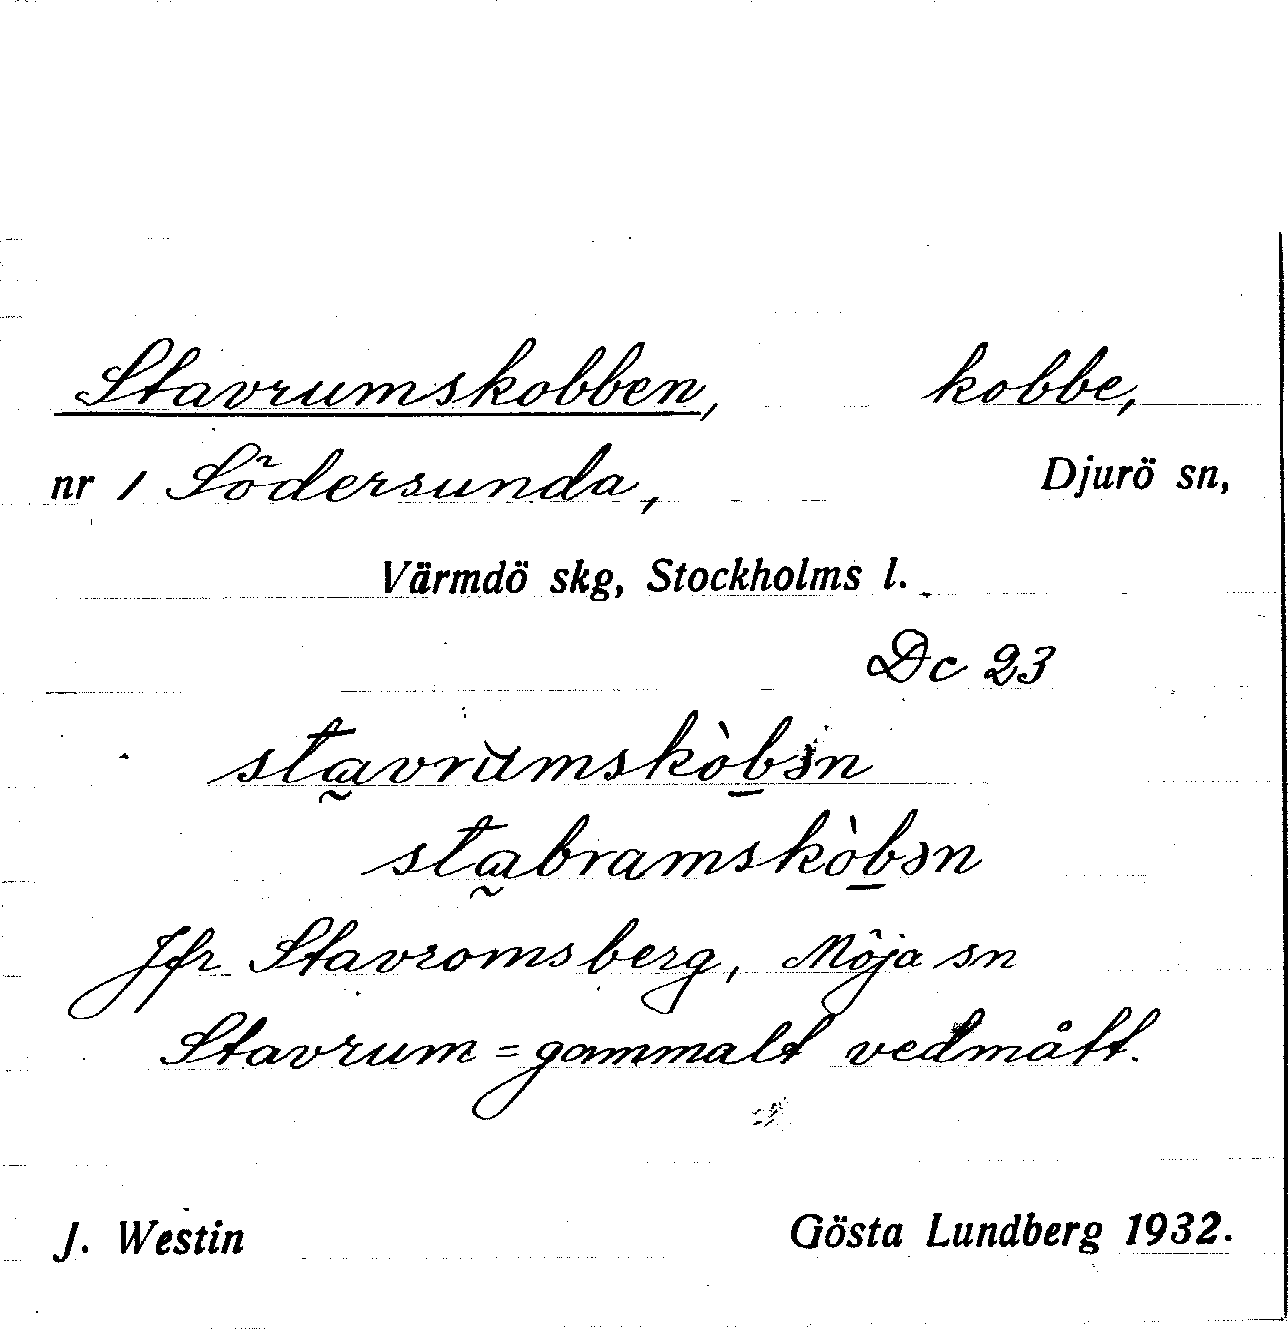 Stavrumskobben, kobbe,
nr 1 Södersunda, Djurö sn,
Värmdö skg, Stockholms l.
Dc 23
sta̰vrùmskòb̲ən
sta̰bramskòb̲ən
Jfr Stavromsberg, Möja sn
Stavrum = gammalt vedmått.
J. Westin Gösta Lundberg 1932.